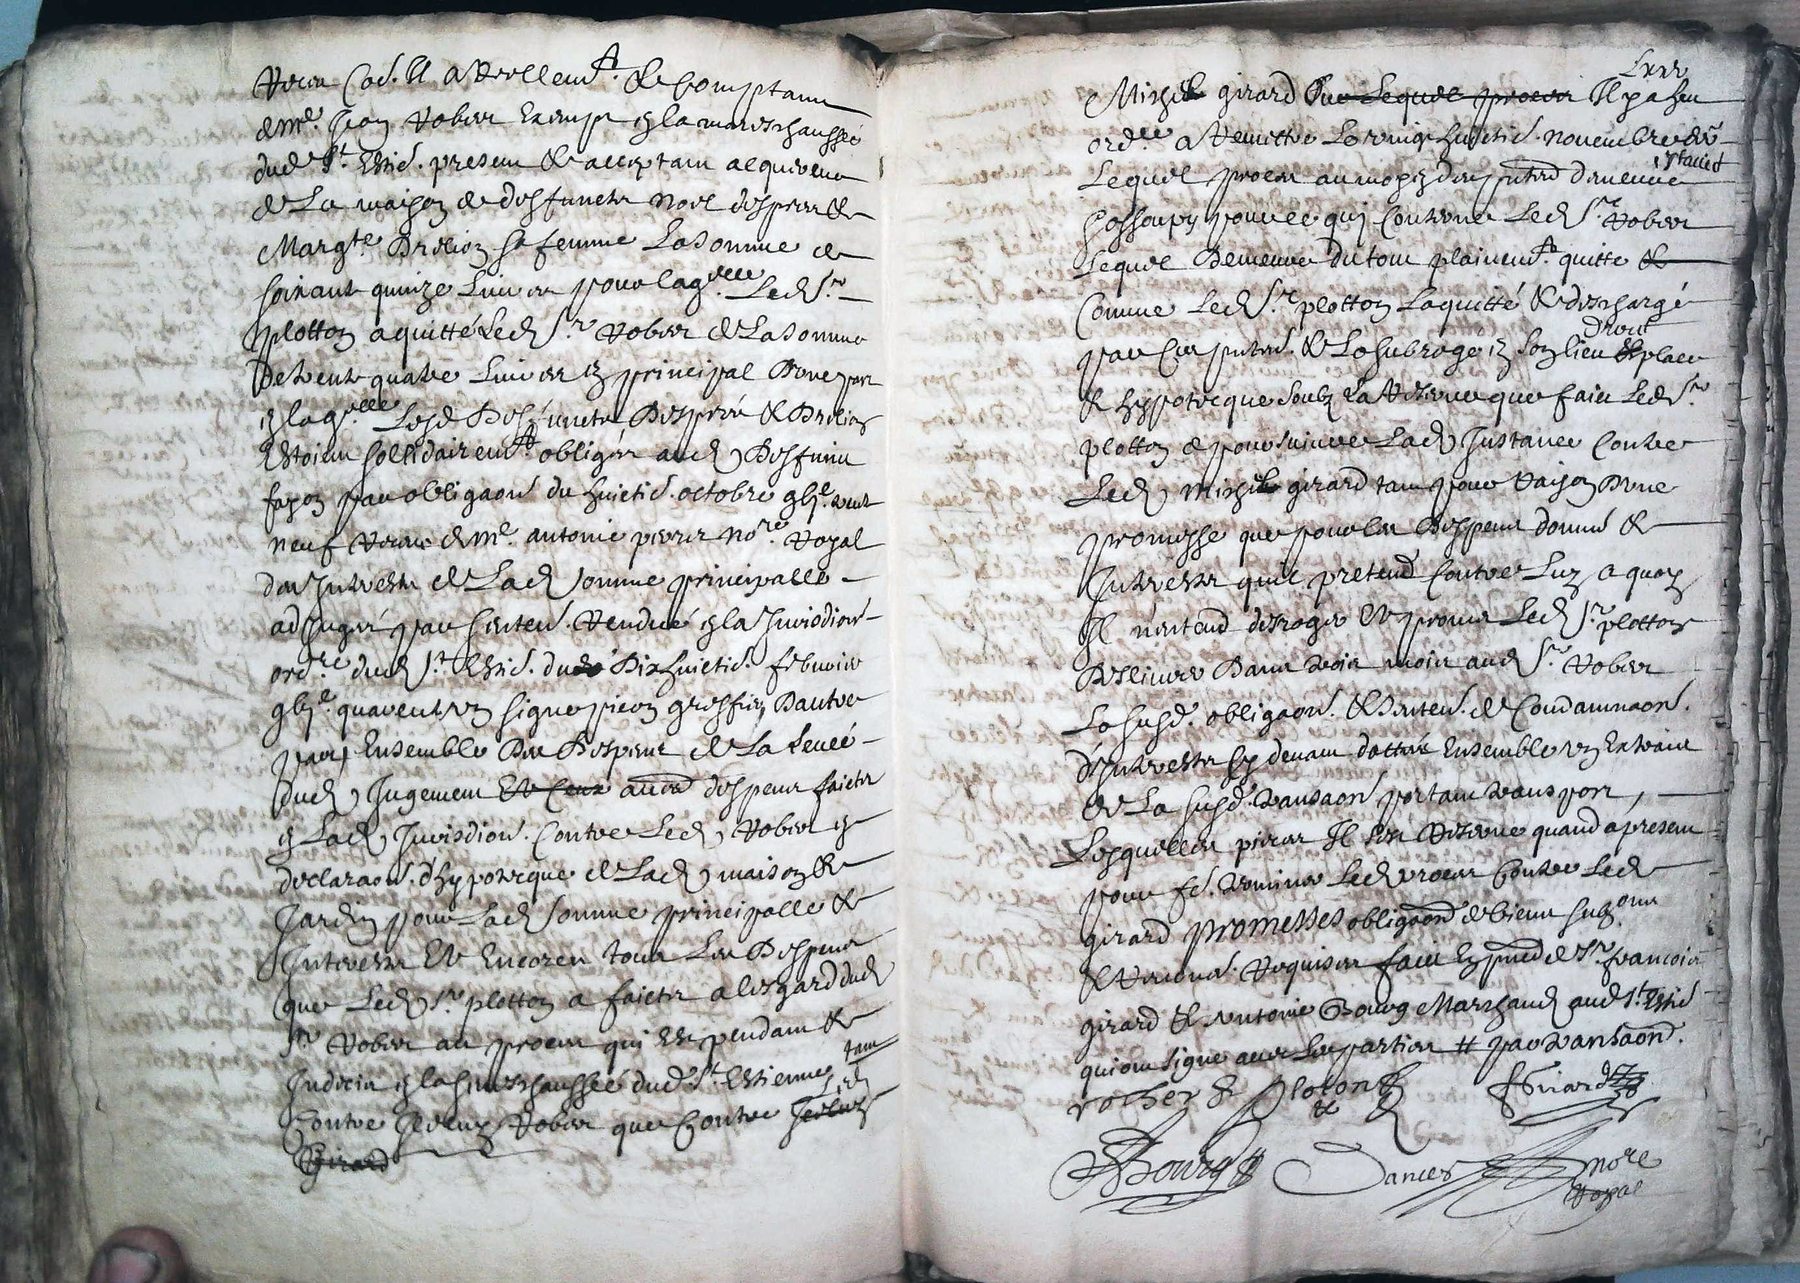 de Me. Jean Rober Exempt en la mareschaussé
dud St. Estie. present & acceptant acquereur
de La maison de deffuncts noel despere &
Margte. Brelion sa femme La somme de
soixante quinze Livres pour laqelle. Led Sr.
plotton a quitté Led Sr. Rober de La somme
De trente quatre Livres en principal Deue par
en laqelle. Lesd Deffuncts Desperé & Brelion
Estoient sollidairemt. obligés aud Deffunt
fayon par obligaon du huictie. octobre gbjc. vent
neuf Receue de Me. antoine pierre nore. Royal
des Interests de Lad somme principalle
adjugés par senten. Rendue en la Jurisdion
ordre. dud St. Estie. du Dix huictie. febvrier
gbjc. quarent un signe pieron greffier Dautre
part Ensemble Des Despens de La Levée
dud Jugement despens faicts
en Lad Jurisdion. Contre Led Rober en
declaraon. d'hypoteque de Lad maison &
Jardin pour Lad somme principalle &
Interests Et Encores tous Les Despens
que Led Sr. plotton a faicts a lesgard dud
Sr. Rober au proces qui est pendant &
Indecis en la seneschaussée dud St. Estienne tant
Contre Led Rober que Contre
Girard
Lxxx
Michel girard Il pa heu
ordce. a Remettre Le vingt huictie. novembre der
Lequel proces au moyen des putes demeure
assoupy pour ce qui Concerne Led Sr. Rober
Lequel Demeure du tout plainemt. quitte &
Comme Led Sr. plotton La quitté & deschargé
par Ces putes. & La subrogé en son lieu droit & place
& hypoteque soubz La Reserve que faict Led Sr.
plotton de poursuivre Lad Instance Contre
Led Michel girard tant pour Raison Dune
promesse que pour les Despens domes &
Interests quil pretend Contre Luy a quoy
Il nentend desroger Et promet Led Sr. plotton
Deslivrer Dans trois mois aud Sr. Rober
La susd. obligaon. & senten. de Condamnaon.
d'Interests cy devant dattée Ensemble un Extraict
de La susd. transaon portant transport,
Lesquelles pieces Il sen Reserve quand a present
pour fe. terminer Led proces Contre Led
girard promesses obligaons de biens submons
& Renons. Requises faict En pnce de Sr. francois
girard & Antoine Bourg Marchand aud St. Estie
qui ont signe avec Les parties # par transaon.
rocher Ploton Girard
ABourg Dances nore
Royal